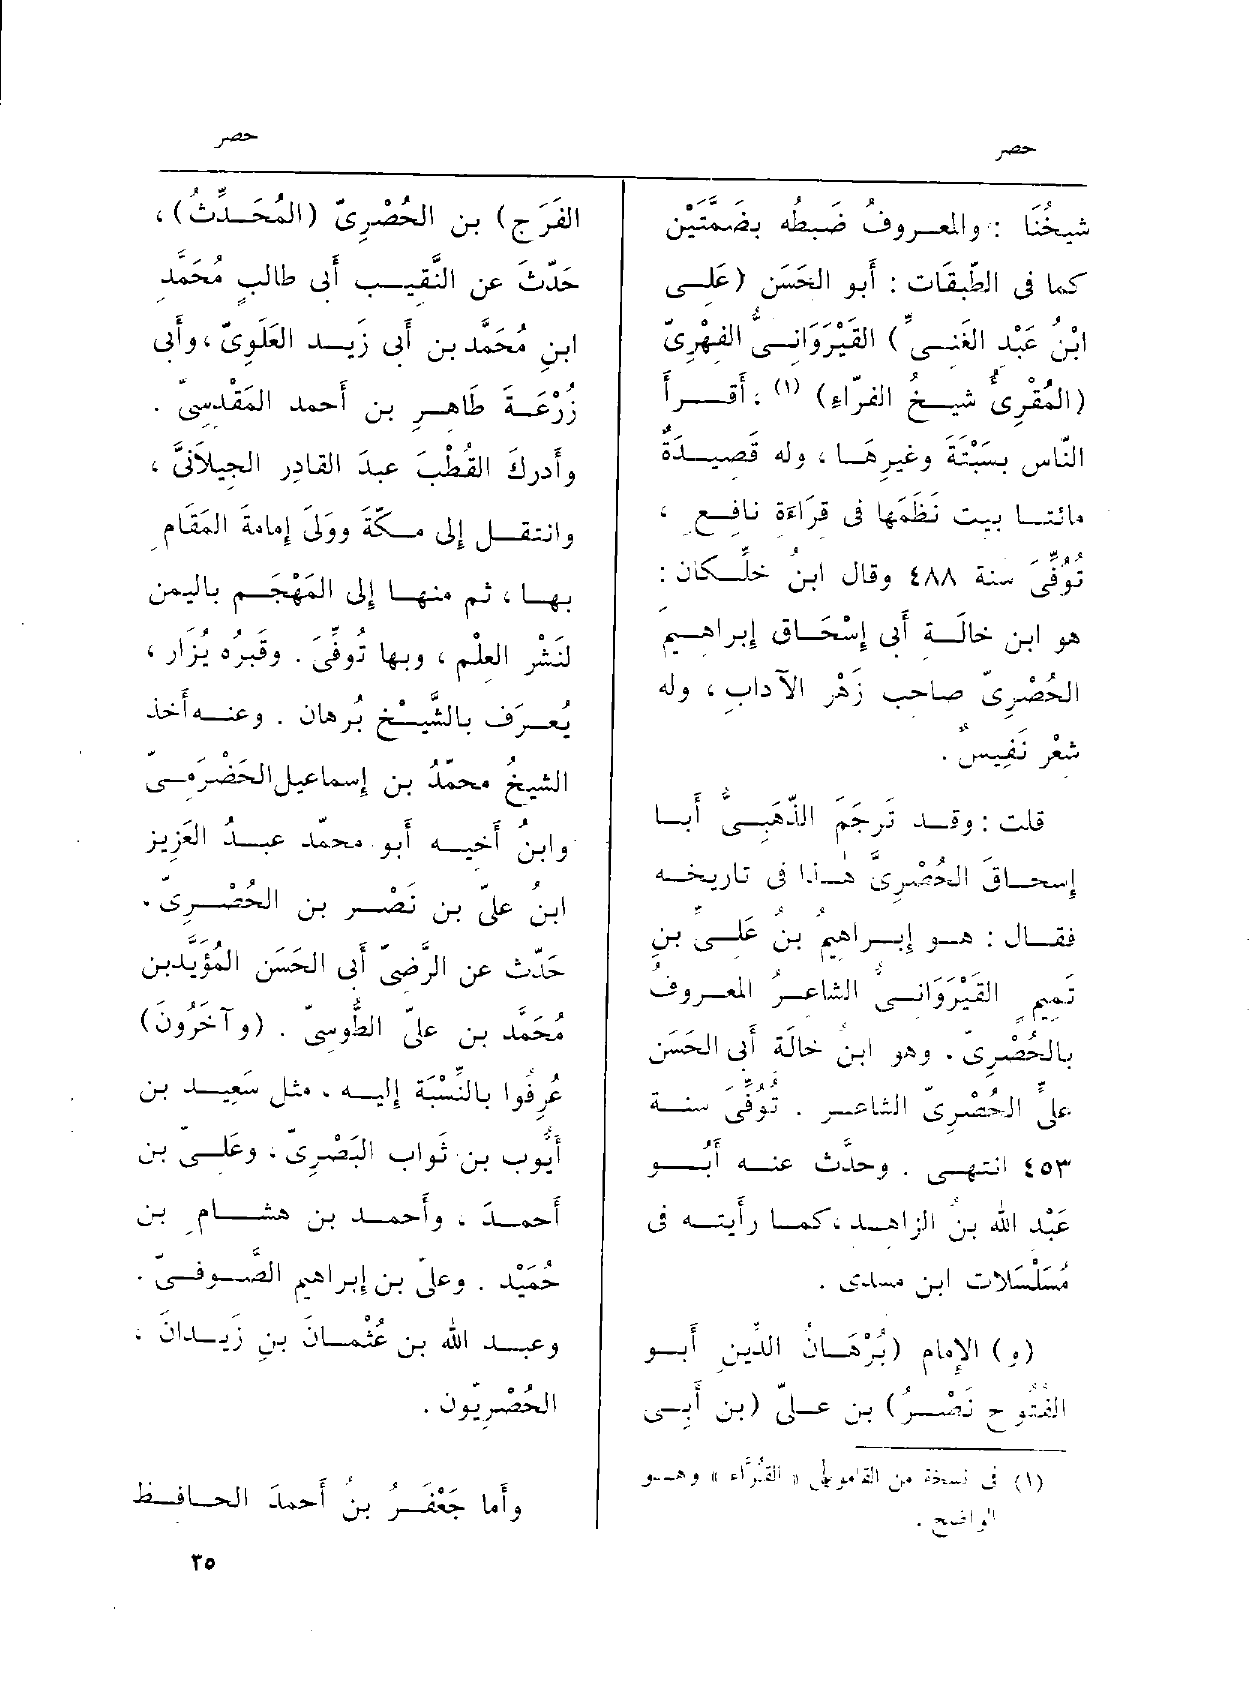 حصر
حصر
شيخُنَا : والمعروفُ ضَبطُه بضَمَّتَيْن
كما فى الطَّبَقَات : أبو الحَسَن (عَلى
ابْنُ عَبْد الغَنىِّ ) القَيْرَوَانىُّ الفِهْرِىّ
(المُقْرِئُ شيخُ الفَرّاء) (١) ، أَقرأَ
النّاس بسَبْتَة وغيرهَا ، وله قَصِيدَةٌ
مائتا بيت نَظَمَها فى قرَاءَة نافع ،
تُوُفِّىَ سنة ٤٨٨ وقال ابنُ خلِّكان :
هو ابن خالَة أَبى إِسْحَاق إبراهيم
الحُصْرِىّ صاحب زَهْر الآداب ، وله
شعْر نَفيسٌ .
قلت : وقد تَرجَمَ الذَّهَبىُّ أَبا
إسحاقَ الحُصْرِىَّ هذا فى تاريخه
فقال : هو إبراهيمُ بنُ عَلىِّ بنِ
تَميمٍ القَيْرَوَانىُّ الشاعرُ المعروفُ
بالحُصْرِىّ . وهو ابنُ خالَة أَبى الحَسَن
علىِّ الحُصْرِىّ الشاعر . تُوُفِّىَ سنة
٤٥٣ انتهى . وحدَّث عنه أَبُو
عَبْد الله بنُ الزاهد ، كما رأيته فى
مُسَلْسَلات ابن مسدى .
(و) الإمام (بُرْهَانُ الدِّينِ أَبو
الفُتُوح نَصْرُ) بن علىّ (بن أَبِى
(١) فى نسخة من القاموس « القُرَّاء » وهو
الواضح .
الفَرَج) بن الحُصْرِىّ (المُحَدِّثُ) ،
حَدَّثَ عن النَّقيب أَبى طالبٍ مُحَمَّد
ابنِ مُحَمَّد بن أَبى زَيد العَلَوِىّ ، وأَبى
زُرْعَةَ طَاهر بن أَحمد المَقْدسىّ .
وأَدركَ القُطْبَ عبدَ القادر الجيلانىَّ ،
وانتقل إلى مكَّةَ ووَلىَ إمامةَ المَقَام
بها ، ثم منها إلى المَهْجَم باليمن
لنَشْر العِلْم ، وبها تُوفِّىَ . وقَبرُه يُزَار ،
يُعرَف بالشَّيْخ بُرهان . وعنه أَخذ
الشيخُ محمّدُ بن إسماعيل الحَضْرَمىّ
وابنُ أَخيه أَبو محمّد عبدُ العَزِيز
ابنُ علىّ بن نَصْر بن الحُصْرِىّ .
حَدَّث عن الرَّضىّ أَبى الحَسَن المُؤَيَّدبن
مُحَمَّد بن علىّ الطُّوسىّ . (وآخَرُونَ)
عُرِفُوا بالنِّسْبَة إليه . مثل سَعِيد بن
أَيُّوب بن ثَواب البَصْرِىّ ، وعَلىّ بن
أَحمدَ ، وأَحمد بن هشام بن
حُمَيْد . وعلىّ بن إبراهيم الصُّوفىّ .
وعبد الله بن عُثْمانَ بنِ زَيدانَ ،
الحُصْرِيّون .
وأَما جَعْفَرُ بنُ أَحمدَ الحافظ
٢٥